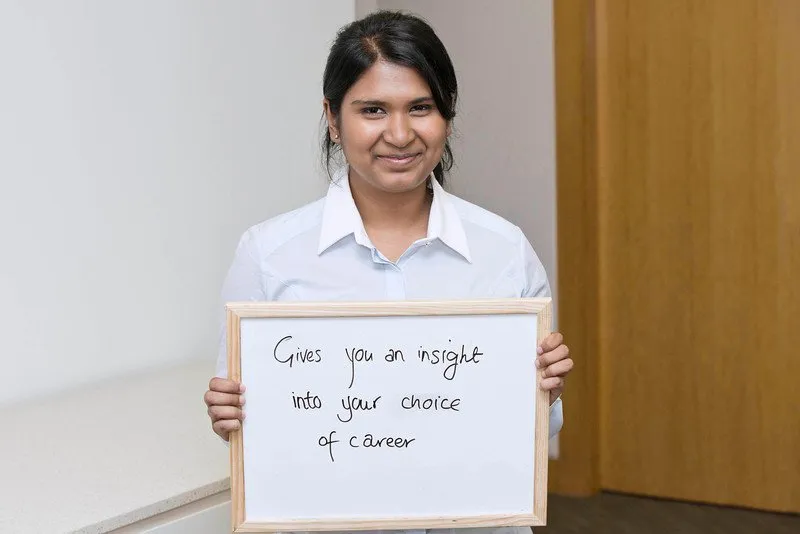 Gives you an insight
into your choice
of career